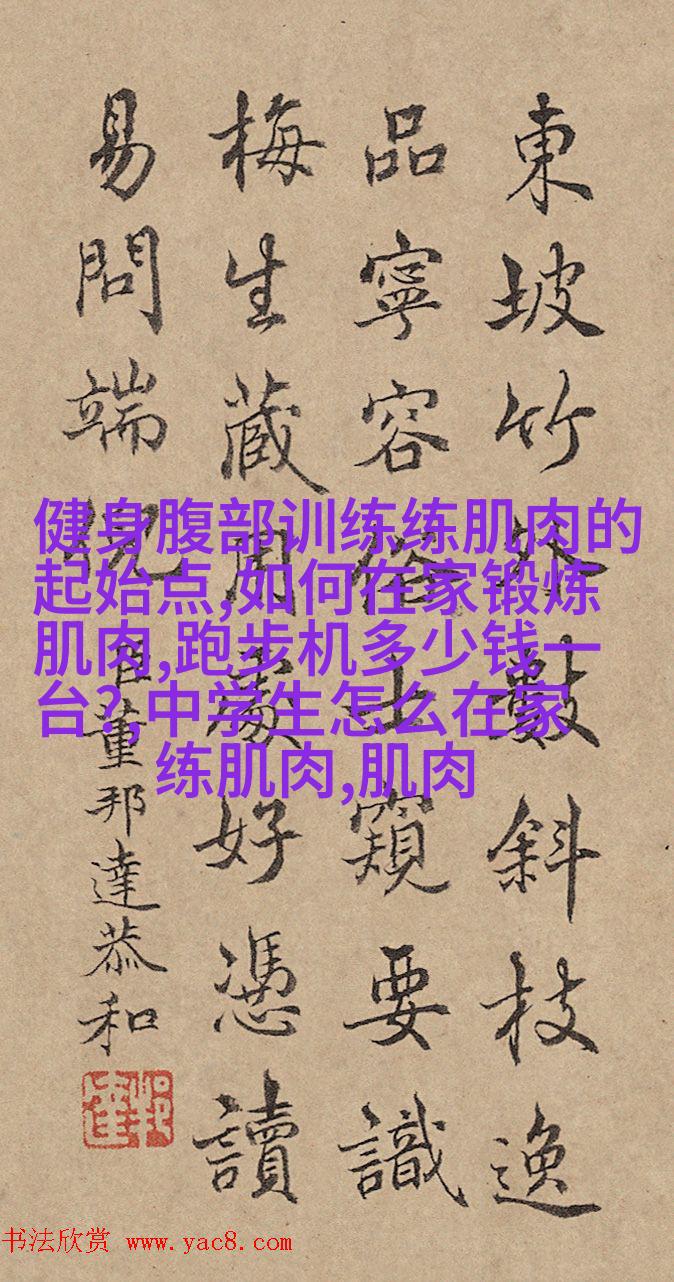 東坡竹外數斜枝逸
品寧容俗士窺要識
梅生藏用處好憑讀
易問端倪
臣董邦達恭和
健身腹部训练练肌肉的
起始点,如何在家锻炼
肌肉,跑步机多少钱一
台?,中学生怎么在家
练肌肉,肌肉
书法欣赏 www.yac8.com